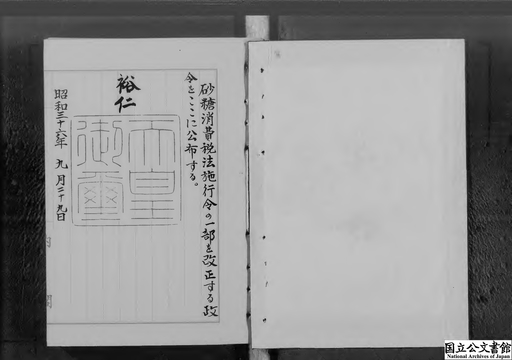 砂糖消費税法施行令の一部を改正する政
令をここに公布する。
裕仁
天皇
御璽
昭和三十六年九月二十九日
内閣
国立公文書館
National Archives of Japan